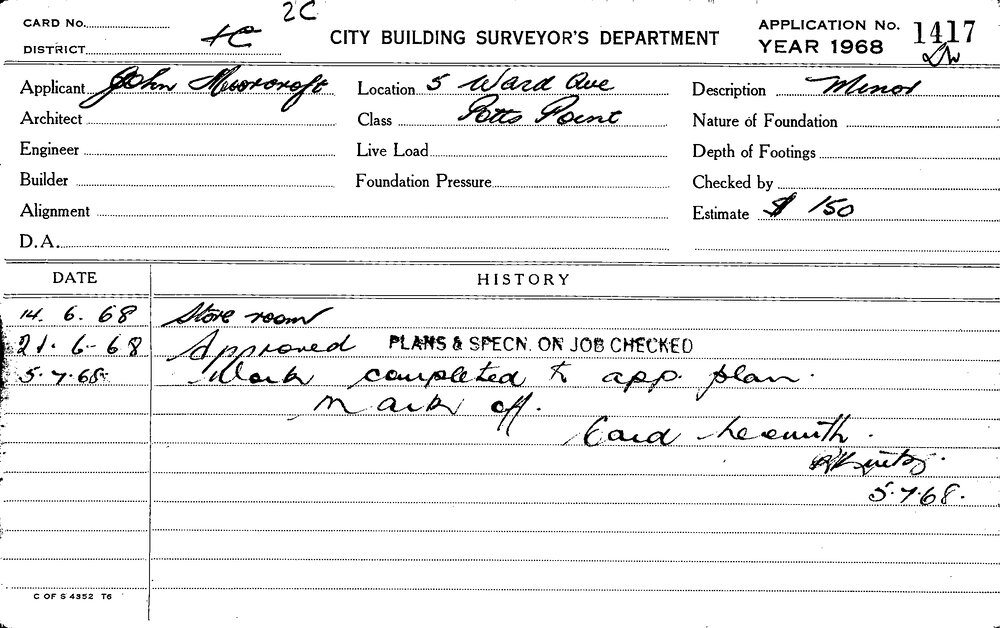 2C
CARD No.
DISTRICT
CITY BUILDING SURVEYOR'S DEPARTMENT
APPLICATION No. 1417
YEAR 1968
Applicant John Moorcroft
Location 5 Ward Ave
Description Minor
Architect
Class Potts Point
Nature of Foundation
Engineer
Live Load
Depth of Footings
Builder
Foundation Pressure
Checked by
Alignment
Estimate $ 150
D.A.
DATE HISTORY
14. 6. 68 Store room
21. 6-68 Approved PLANS & SPECN. ON JOB CHECKED
5.7.68 Work completed to app. plan.
Mark off.
Card herewith.
5.7.68.
C OF S 4352 T6